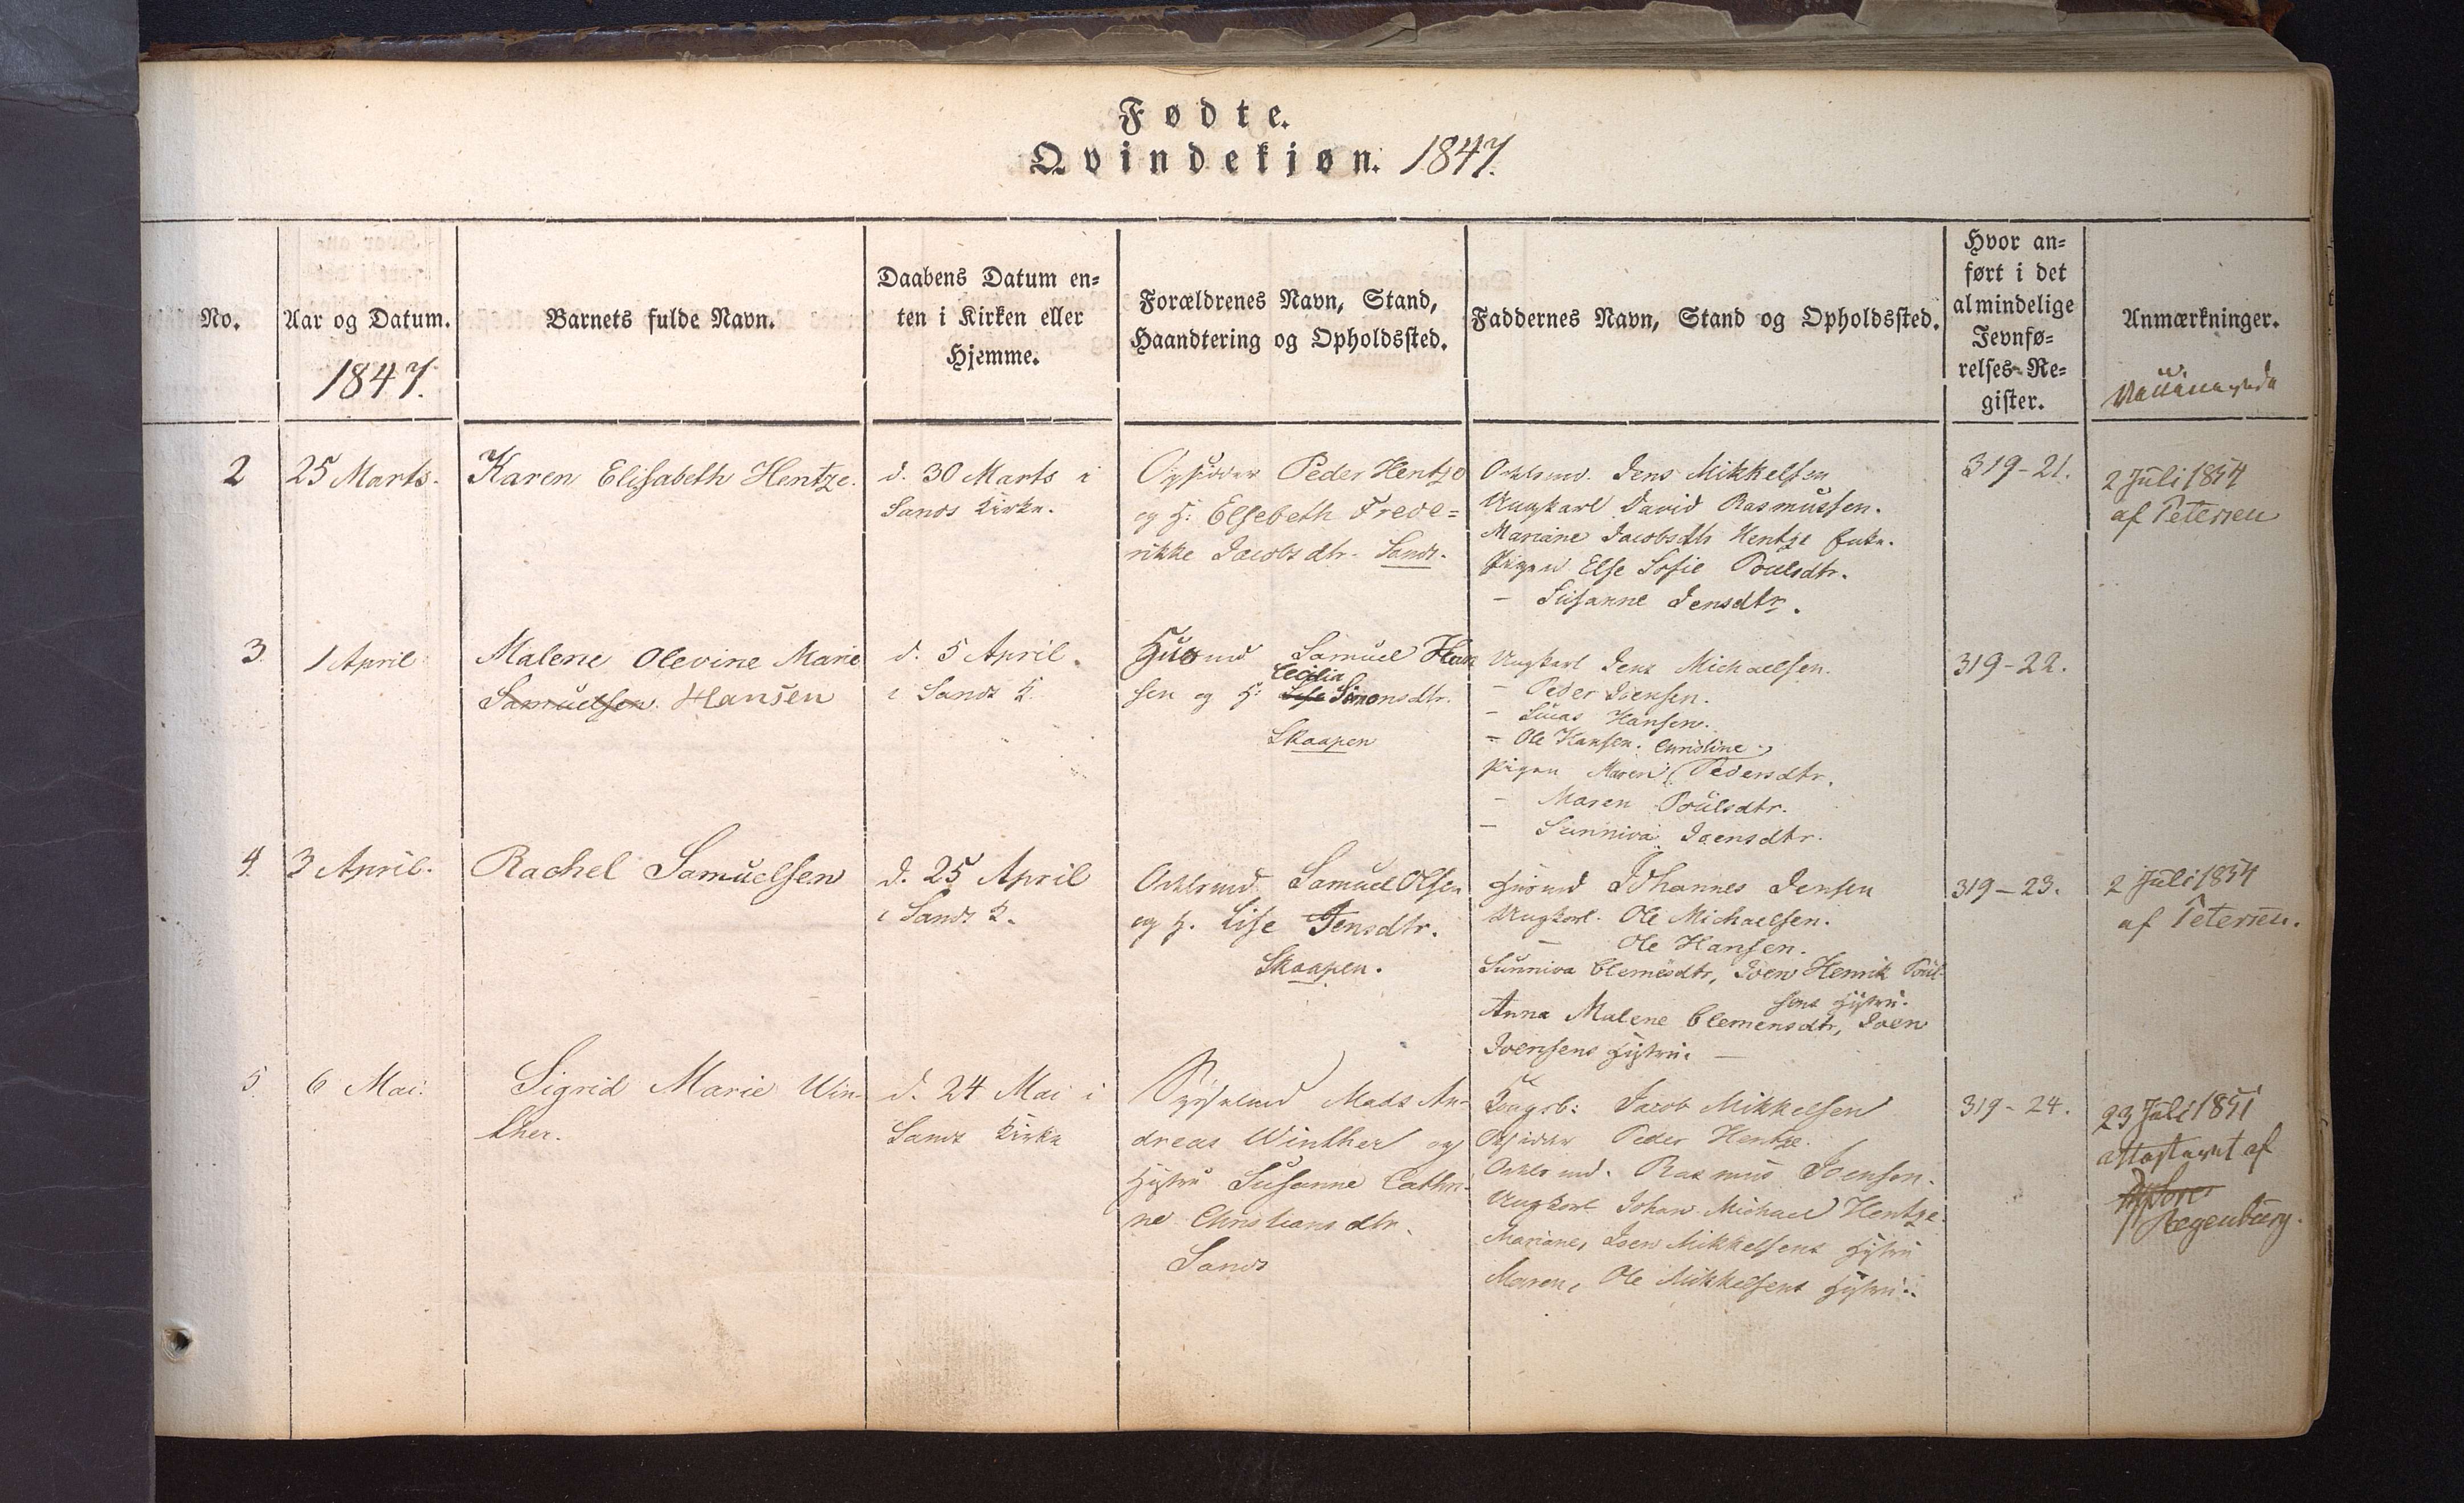 Fødte.
Qvindekjøn. 1847.
No.
Aar og Datum.
1847.
Barnets fulde Navn.
Daabens Datum en=
ten i Kirken eller
Hjemme.
Forældrenes Navn, Stand,
Haandtering og Opholdssted.
Faddernes Navn, Stand og Opholdssted.
Hvor an=
ført i det
almindelige
Jevnfø=
relses-Re=
gister.
Anmærkninger.
2
25 Marts.
Karen Elisabeth Hentze.
d. 30 Marts i
Sands Kirke.
Opsidder Peder Hentze
og H: Elsebeth Frede=
rikke Jacobsdtr. Sand.
Jens Mikkelsen
Ungkarl David Rasmussen.
Mariane Jacobsdtr Hentze Enke.
Pigen Else Sofie Poulsdtr.
– Susanne Jensdtr.
319-21.
2 Juli 1854
af Petersen
3
1 April
Malene Olevine Marie
Samuelsen Hansen
d. 5 April.
i Sands K.
Husmd Samuel Han
Cecilia
sen og H: Lise Simonsdtr.
Skaapen
Ungkarl Jens Michaelsen.
– Peder Joensen.
– Lucas Hansen.
– Ole Hansen. Christine
Pigen Maren Pedersdtr.
– Maren Poulsdtr.
– Sunniva Joensdtr.
319-22.
4.
3 April.
Rachel Samuelsen
d. 25 April
i Sands K.
Samuel Olsen
og H. Lise Jensdtr.
Skaapen.
Husmd Johannes Jensen
Ungkarl. Ole Michaelsen.
– Ole Hansen.
Sunniva Clemēsdtr, Joen Henrik Poul-
sens Hustru.
Anna Malene Clemensdtr, Joen
Joensens Hustru. –
319-23.
2 Juli 1854
af Petersen.
5.
6 Mai.
Sigrid Marie Win-
ther.
d. 24 Mai i
Sands Kirke
Sysselmd Mads An-
dreas Winther og
Hustru Susanne Cathri-
ne Christiansdtr.
Sands
Kongsb: Jacob Mikkelsen
Opsidder Peder Hentze.
Rasmus Joensen.
Ungkarl Johan Michael Hentze.
Mariane, Joen Mikkelsens Hustru
Maren, Ole Mikkelsens Hustru.
319-24.
23 Juli 1851
attesteret af
Regenburg.